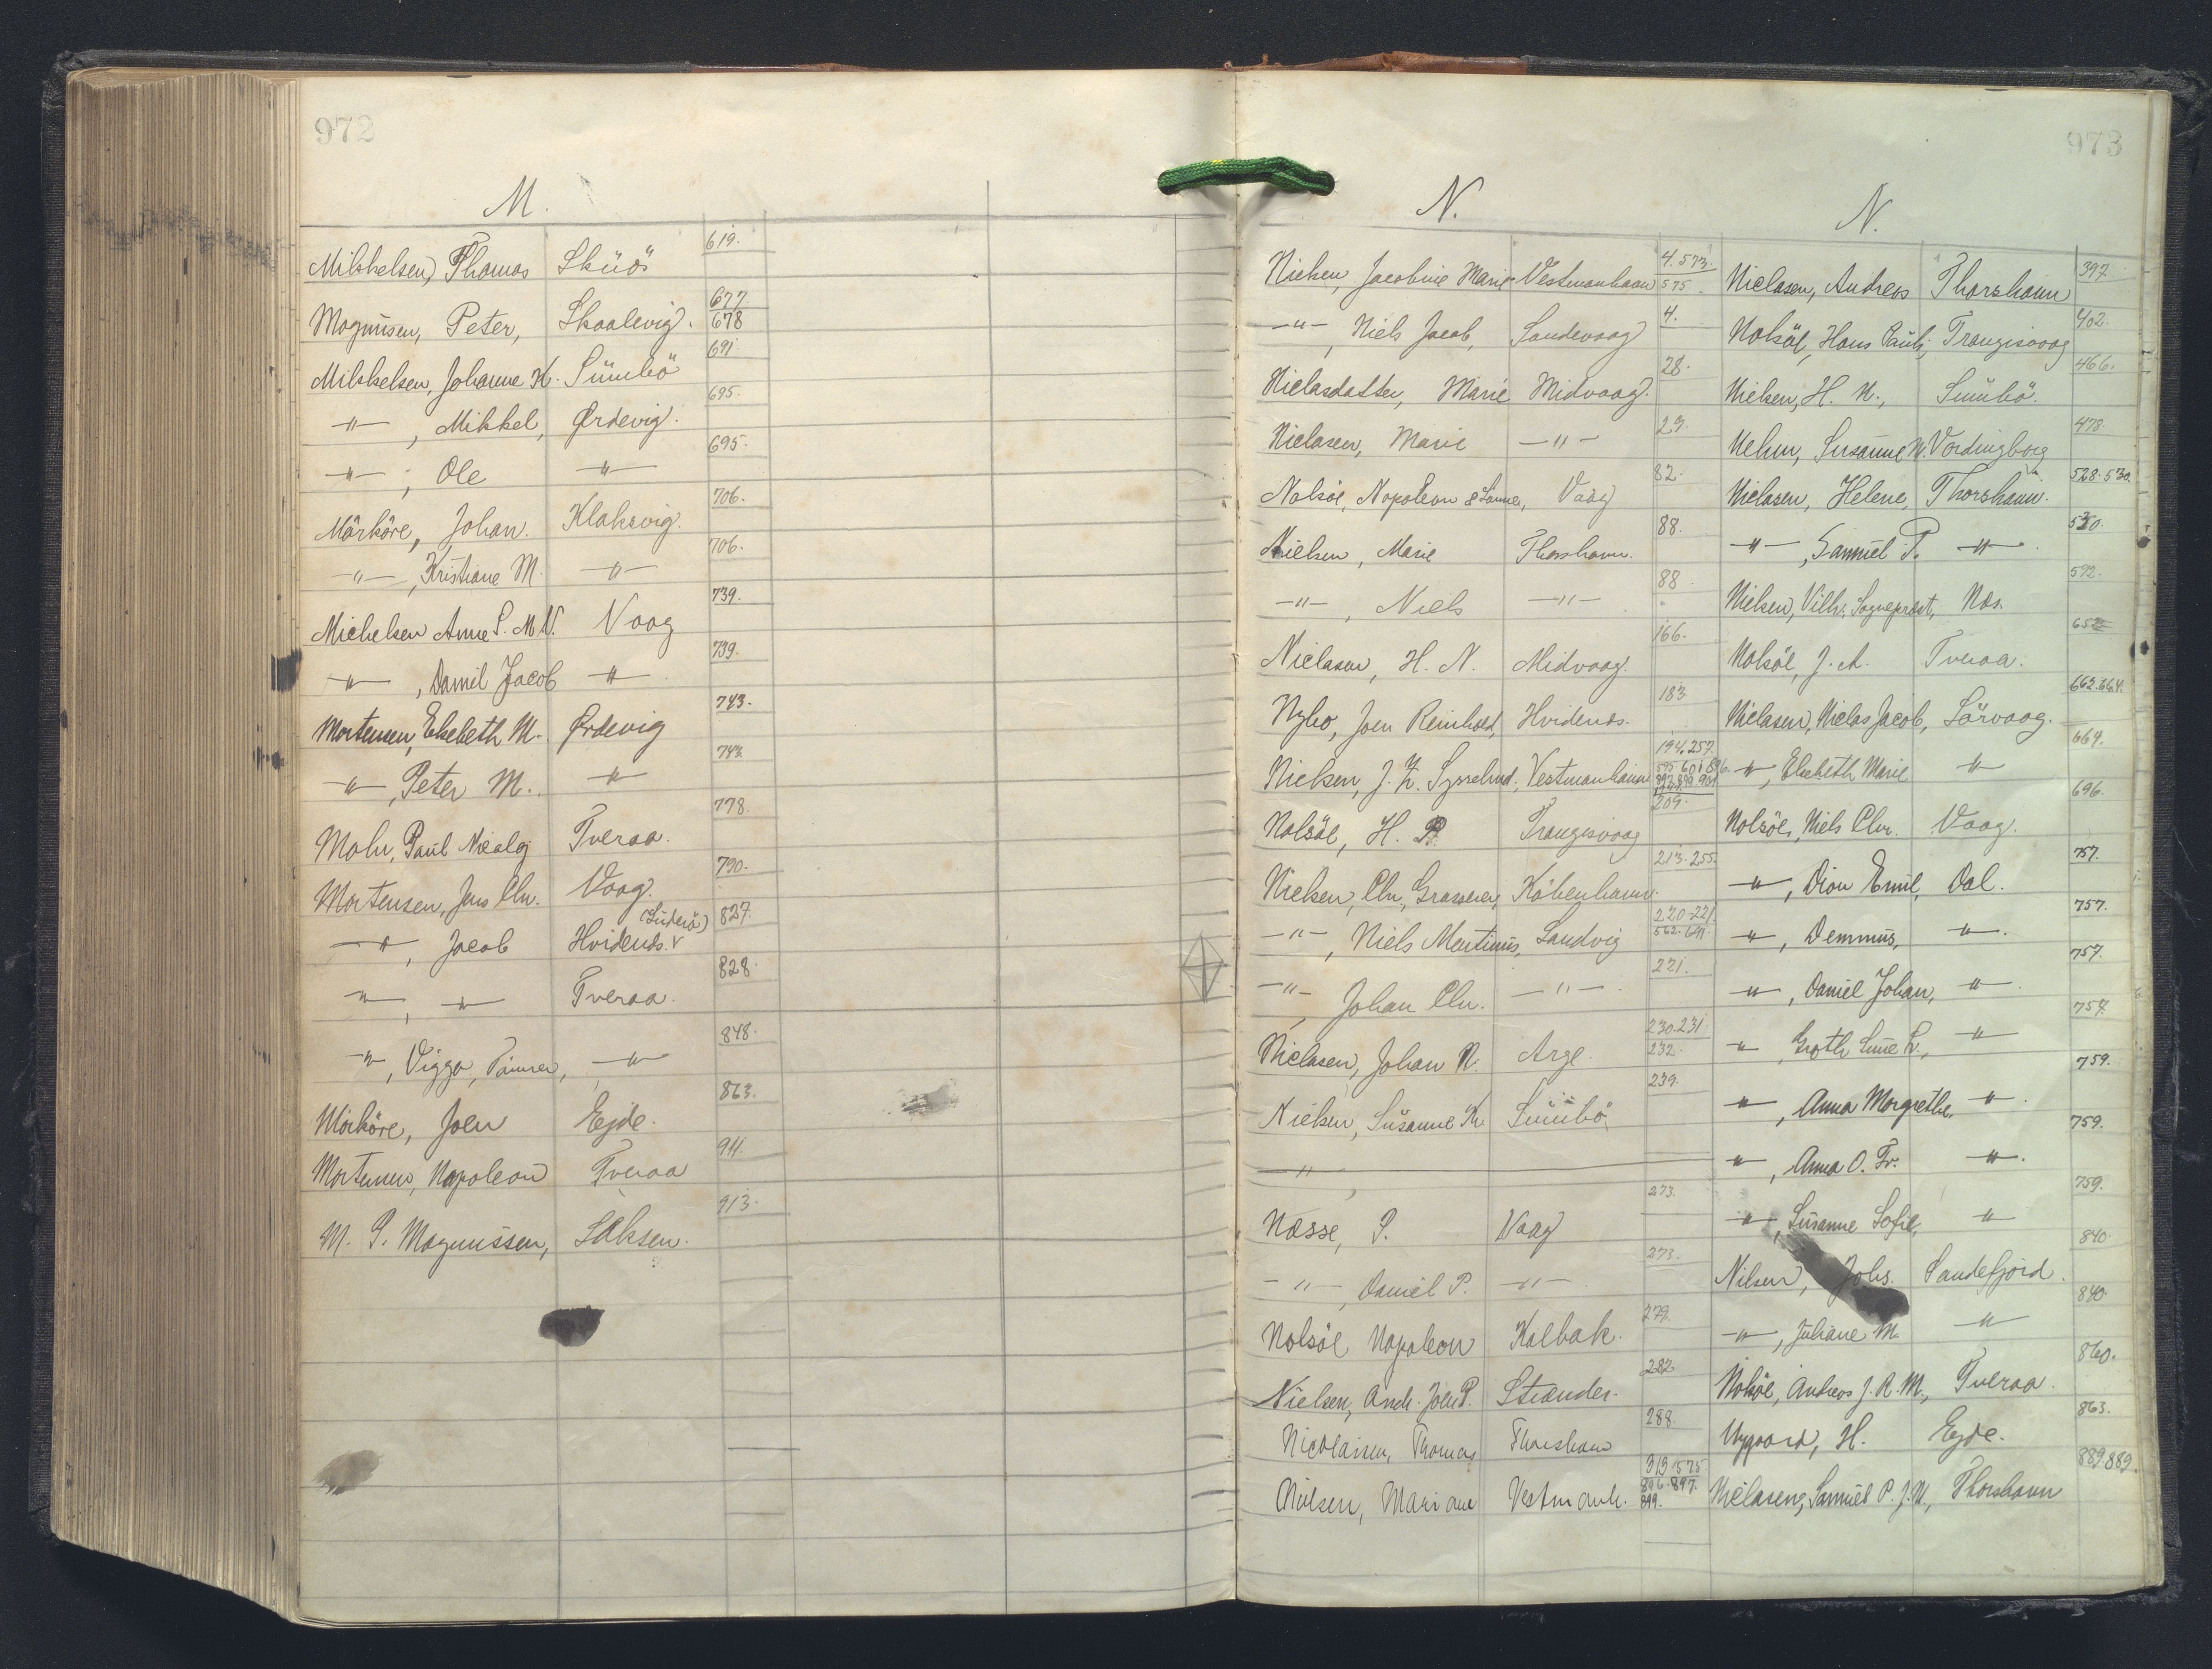 972
M.
Mikkelsen, Thomas Skúö 619.
Magnusen, Peter, Skaalevig. 677. 678
Mikkelsen, Johanne K. Sümbö 691.
-"-, Mikkel, Ørdevig. 695.
-"-, Ole -"- 695.
Mörköre, Johan. Klaksvig. 706.
-"-, Kristiane M. -"- 706.
Michelsen Anne S. M. N. Vaag 739.
-"-, Daniel Jacob -"- 739.
Mortensen, Elsebeth M. Ørdevig 743.
-"-, Peter M. -"- 743.
Mohr, Paul Nicolaj Tveraa. 778.
Mortensen, Jens Chr. Vaag. 790.
-"-, Jacob Hvidenæs. (Süderö) 827.
-"-, -"- Tveraa. 828.
-"-, Viggo, Tømrer, -"- 848.
Mörköre, Joen Ejde. 863.
Mortensen, Napoleon Tveraa 911.
M. P. Magnussen, Saksen. 913.
973
N.
Nielsen, Jacobine Marie Vestmanhavn 4. 573. 575.
-"-, Niels Jacob, Sandevaag 4.
Niclasdatter, Marie Midvaag. 28.
Niclasen, Marie -"- 29.
Nolsöe, Napoleon & Sanne, Vaag 82.
Nielsen, Marie Thorshavn. 88.
-"-, Niels -"- 88
Niclasen, H. N. Midvaag. 166.
Nybo, Joen Reinhold, Hvidenæs. 183
Nielsen, J. Z. Sysselmd., Vestmanhavn 194. 257. 595 601 896. 209.
Nolsöe, H. P. Trangisvaag
Nielsen, Chr, Grosserer, Köbenhavn. 213. 255.
-"-, Niels Martinus, Sandvig 220-221. 562. 691.
-"-, Johan Chr. -"- 221.
Niclasen, Johan N. Arge. 230.231. 232.
Nielsen, Susanne Kr. Sümbö. 239.
-"-,
Næsse, P. Vaag 273.
-"-, Daniel P. -"- 273.
Nolsöe Napoleon Kalbak. 279.
Nielsen, Andr. Joen P. Strænder. 282.
Nicolaisen, Thomas Thorshavn 288.
Nielsen, Mariane Vestmanh. 313 575 896. 897. 899.
N.
Niclasen, Andreas Thorshavn 397.
Nolsöe, Hans Pauli, Trangisvaag 402.
Nielsen, H. N., Sümbö. 466.
Nehm, Susanne N. Vordingborg 478.
Niclasen, Helene, Thorshavn. 528-530.
-"-, Samuel P. -"- 530.
Nielsen, Vilh. Sognepræst, Næs. 572.
Nolsöe, J. A. Tveraa. 652
Niclasen, Niclas Jacob, Sörvaag. 662.664.
-"-, Elsebeth Marie -"- 664.
Nolsöe, Niels Chr. Vaag. 696.
-"-, Dion Emil, Dal. 757.
-"-, Demmus, -"- 757.
-"-, Daniel Johan, -"- 757.
-"-, -"- 757.
-"-, Anna Margrethe, -"- 759.
-"-, Anna O. Fr. -"- 759.
-"-, Susanne Sofie, -"- 759.
Nilsen, Johs. Sandefjord. 840
-"-, Juliane M. -"- 840.
Nolsöe, Andreas J. R. M., Tveraa. 860.
Nygaard, H. Ejde. 863.
Niclasen, Samuel P. J. N., Thorshavn 889.889.